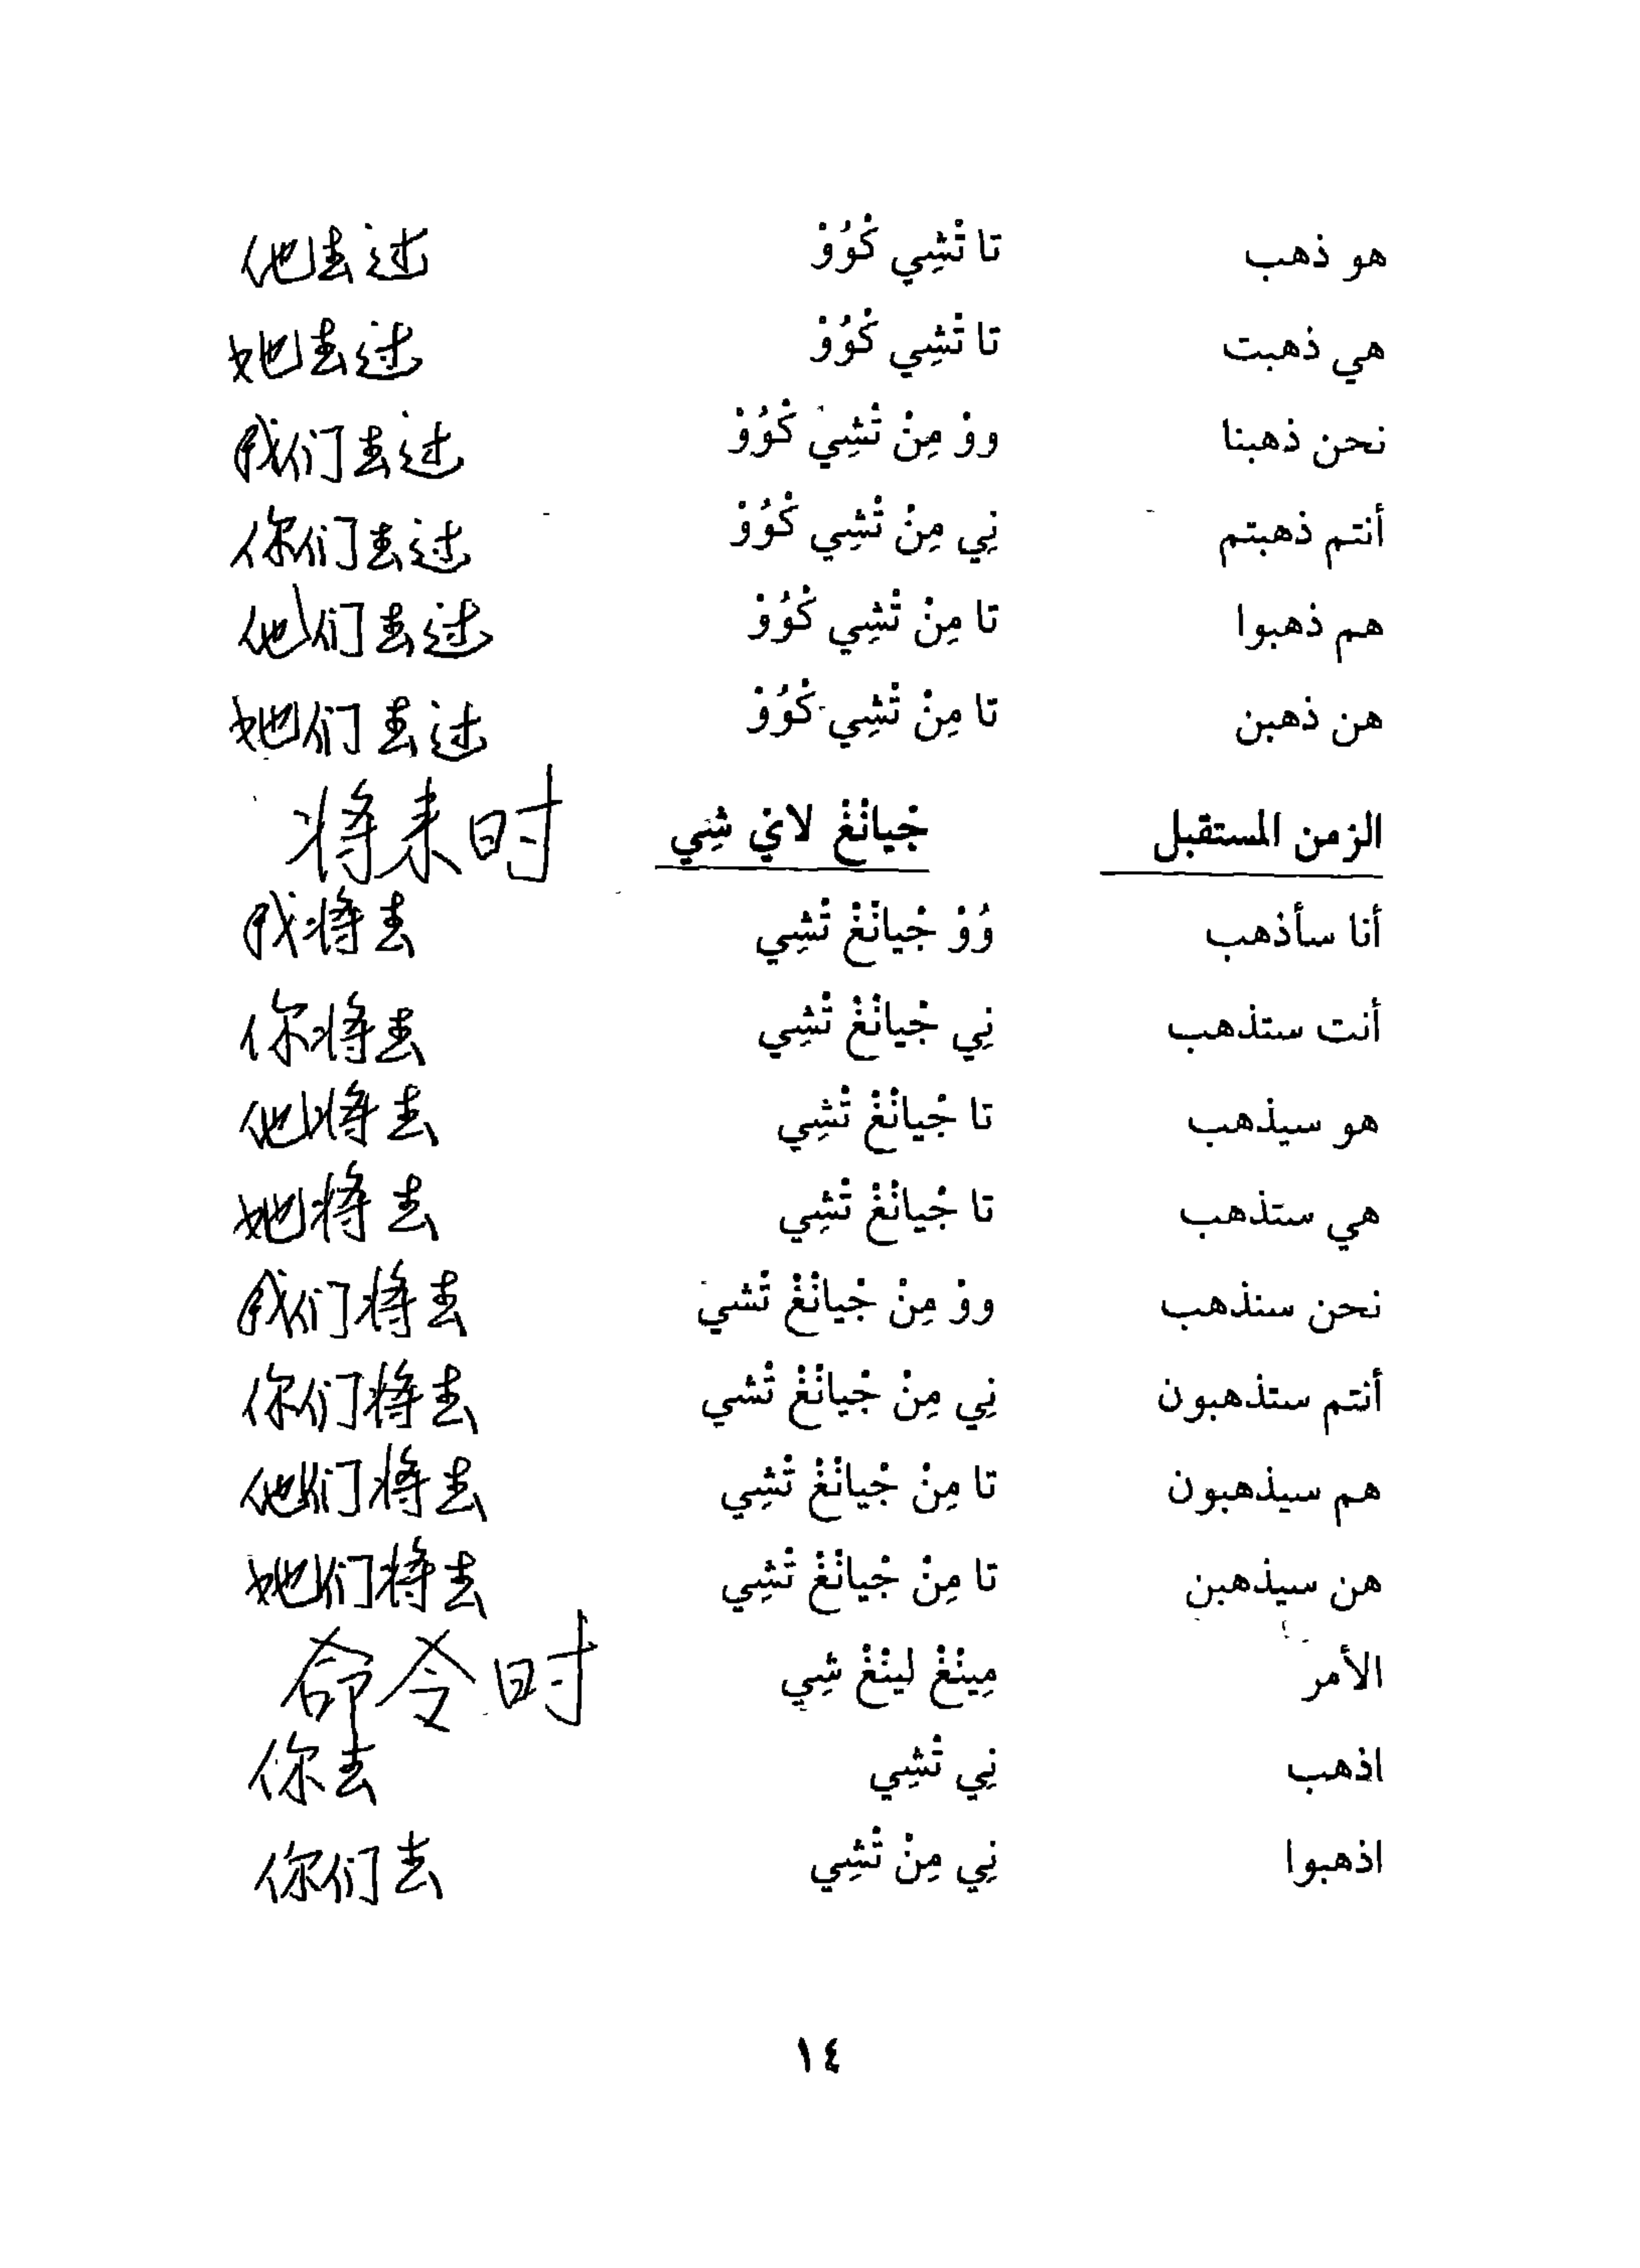 هو ذهب تا تْشِي كْوُوْ 他去过
هي ذهبت تا تْشِي كْوُوْ 她去过
نحن ذهبنا ووْ مِنْ تْشِي كْوُوْ 我们去过
أنتم ذهبتم نِي مِنْ تْشِي كْوُوْ 你们去过
هم ذهبوا تا مِنْ تْشِي كْوُوْ 他们去过
هن ذهبن تا مِنْ تْشِي كْوُوْ 她们去过
الزمن المستقبل جْيانْغْ لايْ شِي 将来时
أنا سأذهب وُوْ جْيانْغْ تْشِي 我将去
أنت ستذهب نِي جْيانْغْ تْشِي 你将去
هو سيذهب تا جْيانْغْ تْشِي 他将去
هي ستذهب تا جْيانْغْ تْشِي 她将去
نحن سنذهب ووْ مِنْ جْيانْغْ تْشي 我们将去
أنتم ستذهبون نِي مِنْ جْيانْغْ تْشي 你们将去
هم سيذهبون تا مِنْ جْيانْغْ تْشِي 他们将去
هن سيذهبن تا مِنْ جْيانْغْ تْشِي 她们将去
الأمر مِينْغْ لينْغْ شِي 命令时
اذهب نِي تْشِي 你去
اذهبوا نِي مِنْ تْشِي 你们去
١٤